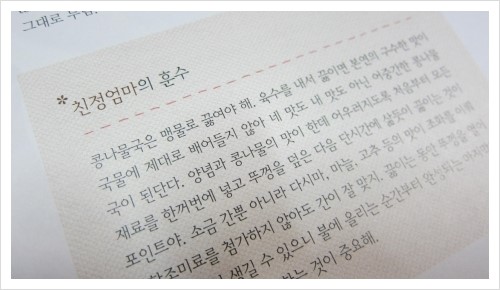 그대로
* 친정엄마의 훈수
콩나물국은 맹물로 끓여야 해. 육수를 내서 끓이면 본연의 구수한 맛이
국물에 제대로 배어들지 않아 네 맛도 내 맛도 아닌 어중간한 콩나물
국이 된단다. 양념과 콩나물의 맛이 한데 어우러지도록 처음부터 모든
재료를 한꺼번에 넣고 뚜껑을 덮은 다음 단시간에 살뜰이 끓이는 것이
포인트야. 소금 간뿐 아니라 다시마, 마늘, 고추 등의 맛이 조화를 이뤄
화학조미료를 첨가하지 않아도 간이 잘 맞지. 끓이는 동안 뚜껑을 열면
생길 수 있으니 불에 올리는 순간부터 완성되는
하는 것이 중요해.